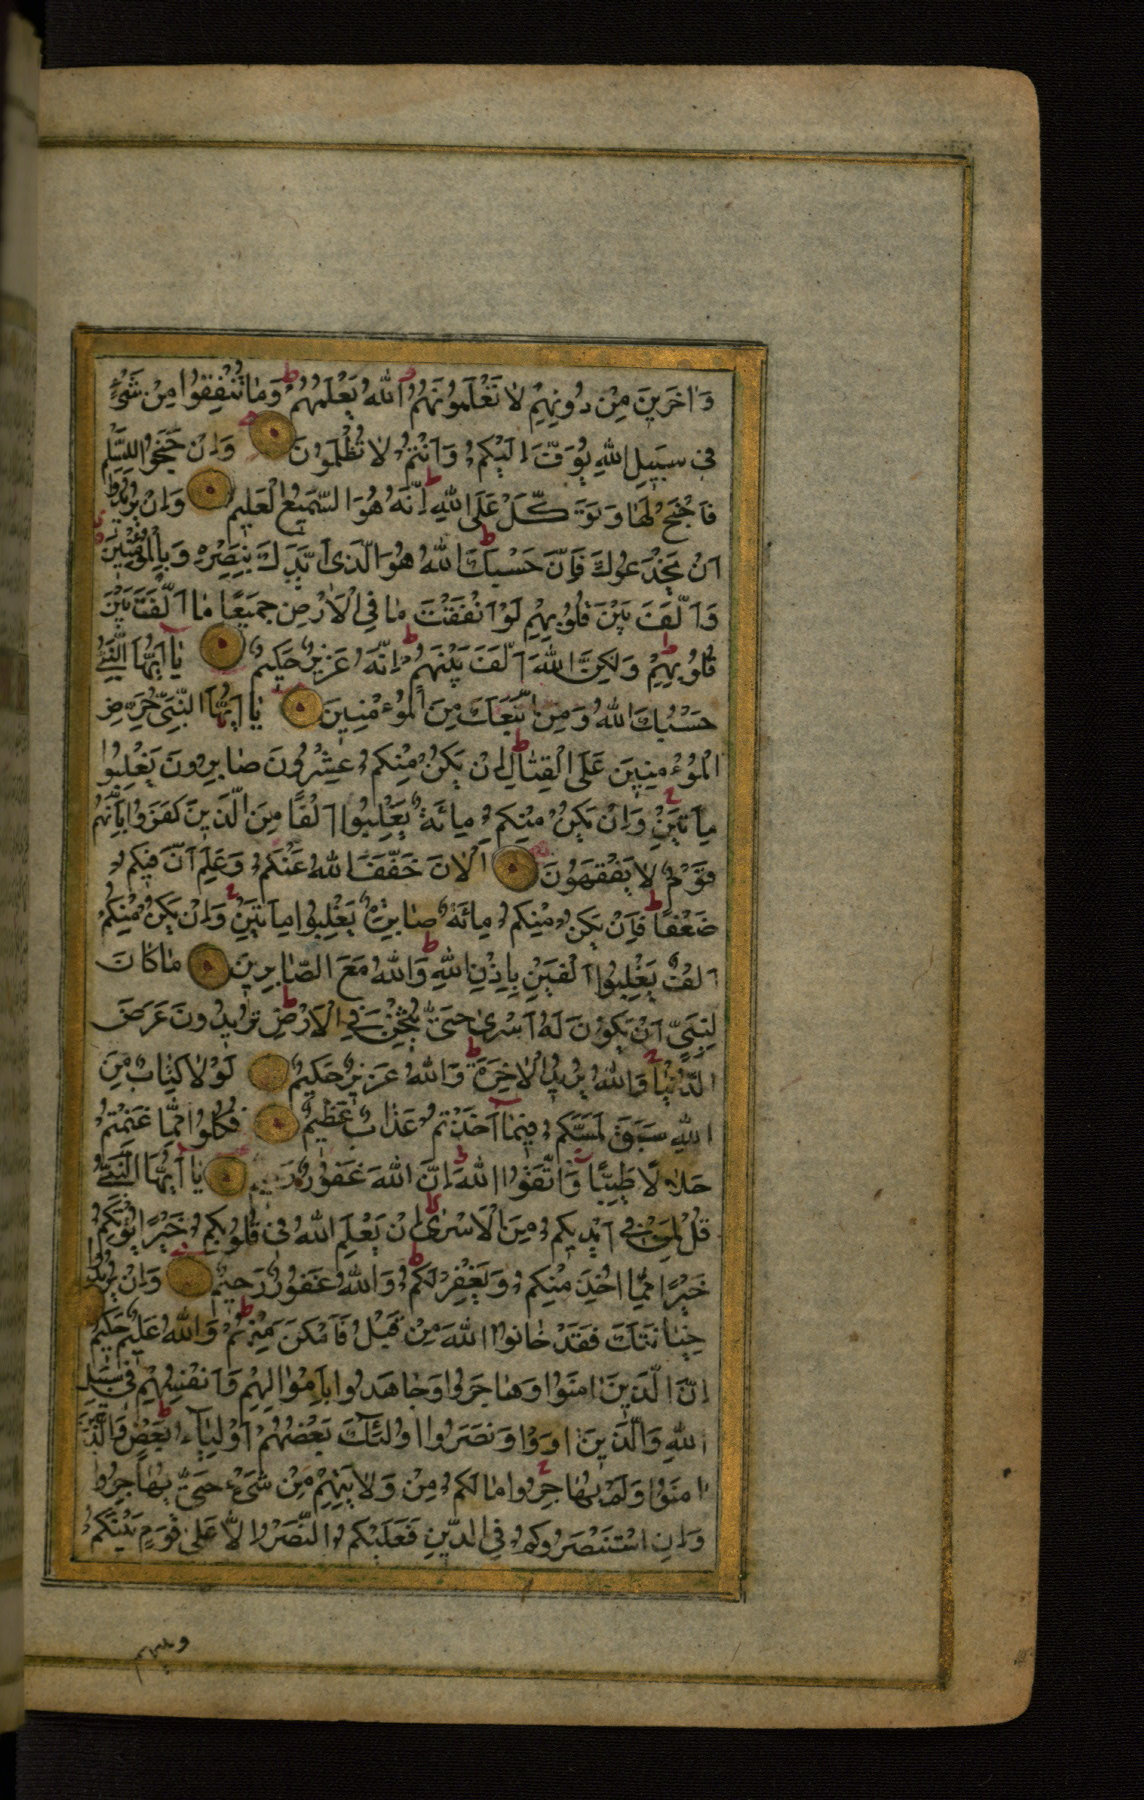 وَاٰخَرِينَ مِنْ دُونِهِمْ لَا تَعْلَمُونَهُمُ اَللّٰهُ يَعْلَمُهُمْ وَمَا تُنْفِقُوا مِنْ شَىْءٍ
فِى سَبِيلِ اللّٰهِ يُوَفَّ اِلَيْكُمْ وَاَنْتُمْ لَا تُظْلَمُونَ وَاِنْ جَنَحُوا لِلسَّلْمِ
فَاجْنَحْ لَهَا وَتَوَكَّلْ عَلَى اللّٰهِ اِنَّهُ هُوَ السَّمِيعُ الْعَلِيمُ وَاِنْ يُرِيدُوا
اَنْ يَخْدَعُوكَ فَاِنَّ حَسْبَكَ اللّٰهُ هُوَ الَّذِى اَيَّدَكَ بِنَصْرِهِ وَبِالْمُؤْمِنِينَ
وَاَلَّفَ بَيْنَ قُلُوبِهِمْ لَوْ اَنْفَقْتَ مَا فِى الْاَرْضِ جَمِيعًا مَا اَلَّفْتَ بَيْنَ
قُلُوبِهِمْ وَلٰكِنَّ اللّٰهَ اَلَّفَ بَيْنَهُمْ اِنَّهُ عَزِيزٌ حَكِيمٌ يَا اَيُّهَا النَّبِىُّ
حَسْبُكَ اللّٰهُ وَمَنِ اتَّبَعَكَ مِنَ الْمُؤْمِنِينَ يَا اَيُّهَا النَّبِىُّ حَرِّضِ
الْمُؤْمِنِينَ عَلَى الْقِتَالِ اِنْ يَكُنْ مِنْكُمْ عِشْرُونَ صَابِرُونَ يَغْلِبُوا
مِاَتَيْنِ وَاِنْ يَكُنْ مِنْكُمْ مِائَةٌ يَغْلِبُوا اَلْفًا مِنَ الَّذِينَ كَفَرُوا بِاَنَّهُمْ
قَوْمٌ لَا يَفْقَهُونَ اَلْاٰنَ خَفَّفَ اللّٰهُ عَنْكُمْ وَعَلِمَ اَنَّ فِيكُمْ
ضَعْفًا فَاِنْ يَكُنْ مِنْكُمْ مِائَةٌ صَابِرَةٌ يَغْلِبُوا مِاَتَيْنِ وَاِنْ يَكُنْ مِنْكُمْ
اَلْفٌ يَغْلِبُوا اَلْفَيْنِ بِاِذْنِ اللّٰهِ وَاللّٰهُ مَعَ الصَّابِرِينَ مَا كَانَ
لِنَبِىٍّ اَنْ يَكُونَ لَهُ اَسْرٰى حَتّٰى يُثْخِنَ فِى الْاَرْضِ تُرِيدُونَ عَرَضَ
الدُّنْيَا وَاللّٰهُ يُرِيدُ الْاٰخِرَةَ وَاللّٰهُ عَزِيزٌ حَكِيمٌ لَوْلَا كِتَابٌ مِنَ
اللّٰهِ سَبَقَ لَمَسَّكُمْ فِيمَا اَخَذْتُمْ عَذَابٌ عَظِيمٌ فَكُلُوا مِمَّا غَنِمْتُمْ
حَلَالًا طَيِّبًا وَاتَّقُوا اللّٰهَ اِنَّ اللّٰهَ غَفُورٌ رَحِيمٌ يَا اَيُّهَا النَّبِىُّ
قُلْ لِمَنْ فِى اَيْدِيكُمْ مِنَ الْاَسْرٰى اِنْ يَعْلَمِ اللّٰهُ فِى قُلُوبِكُمْ خَيْرًا يُؤْتِكُمْ
خَيْرًا مِمَّا اُخِذَ مِنْكُمْ وَيَغْفِرْ لَكُمْ وَاللّٰهُ غَفُورٌ رَحِيمٌ وَاِنْ يُرِيدُوا
خِيَانَتَكَ فَقَدْ خَانُوا اللّٰهَ مِنْ قَبْلُ فَاَمْكَنَ مِنْهُمْ وَاللّٰهُ عَلِيمٌ حَكِيمٌ
اِنَّ الَّذِينَ اٰمَنُوا وَهَاجَرُوا وَجَاهَدُوا بِاَمْوَالِهِمْ وَاَنْفُسِهِمْ فِى سَبِيلِ
اللّٰهِ وَالَّذِينَ اٰوَوْا وَنَصَرُوا اُولٰئِكَ بَعْضُهُمْ اَوْلِيَاءُ بَعْضٍ وَالَّذِينَ
اٰمَنُوا وَلَمْ يُهَاجِرُوا مَا لَكُمْ مِنْ وَلَايَتِهِمْ مِنْ شَىْءٍ حَتّٰى يُهَاجِرُوا
وَاِنِ اسْتَنْصَرُوكُمْ فِى الدِّينِ فَعَلَيْكُمُ النَّصْرُ اِلَّا عَلٰى قَوْمٍ بَيْنَكُمْ
وبينهم